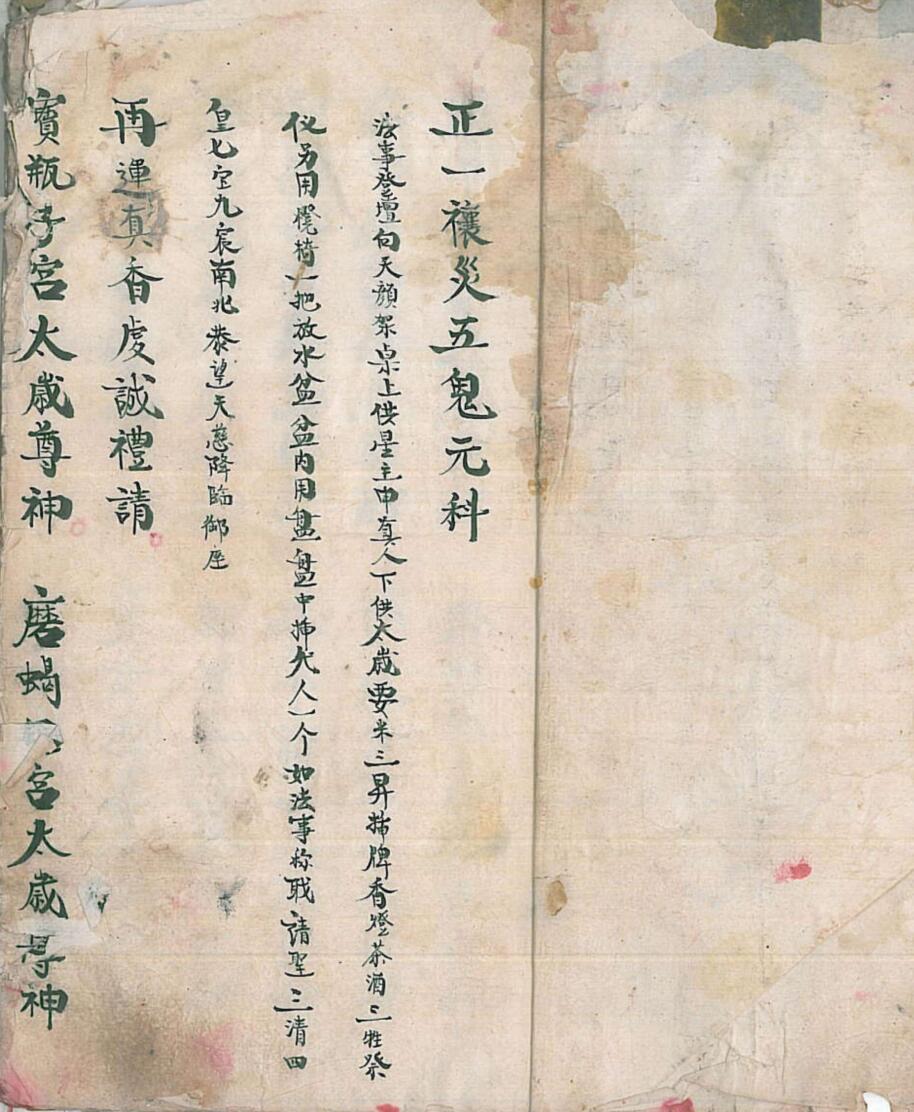 正一禳災五鬼元科
法事登壇向天顏架桌上供星主申真人下供太歲要米三昇揷牌香燈茶酒三牲祭
仪另用櫈椅一把放水盆盆内用盘盘中揷犬人一个如法事称職請聖三清四
皇七宝九宸南北恭望天慈降臨御座
再運真香虔誠禮請
寳瓶子宮太歲尊神 磨蝎宮太歲尊神